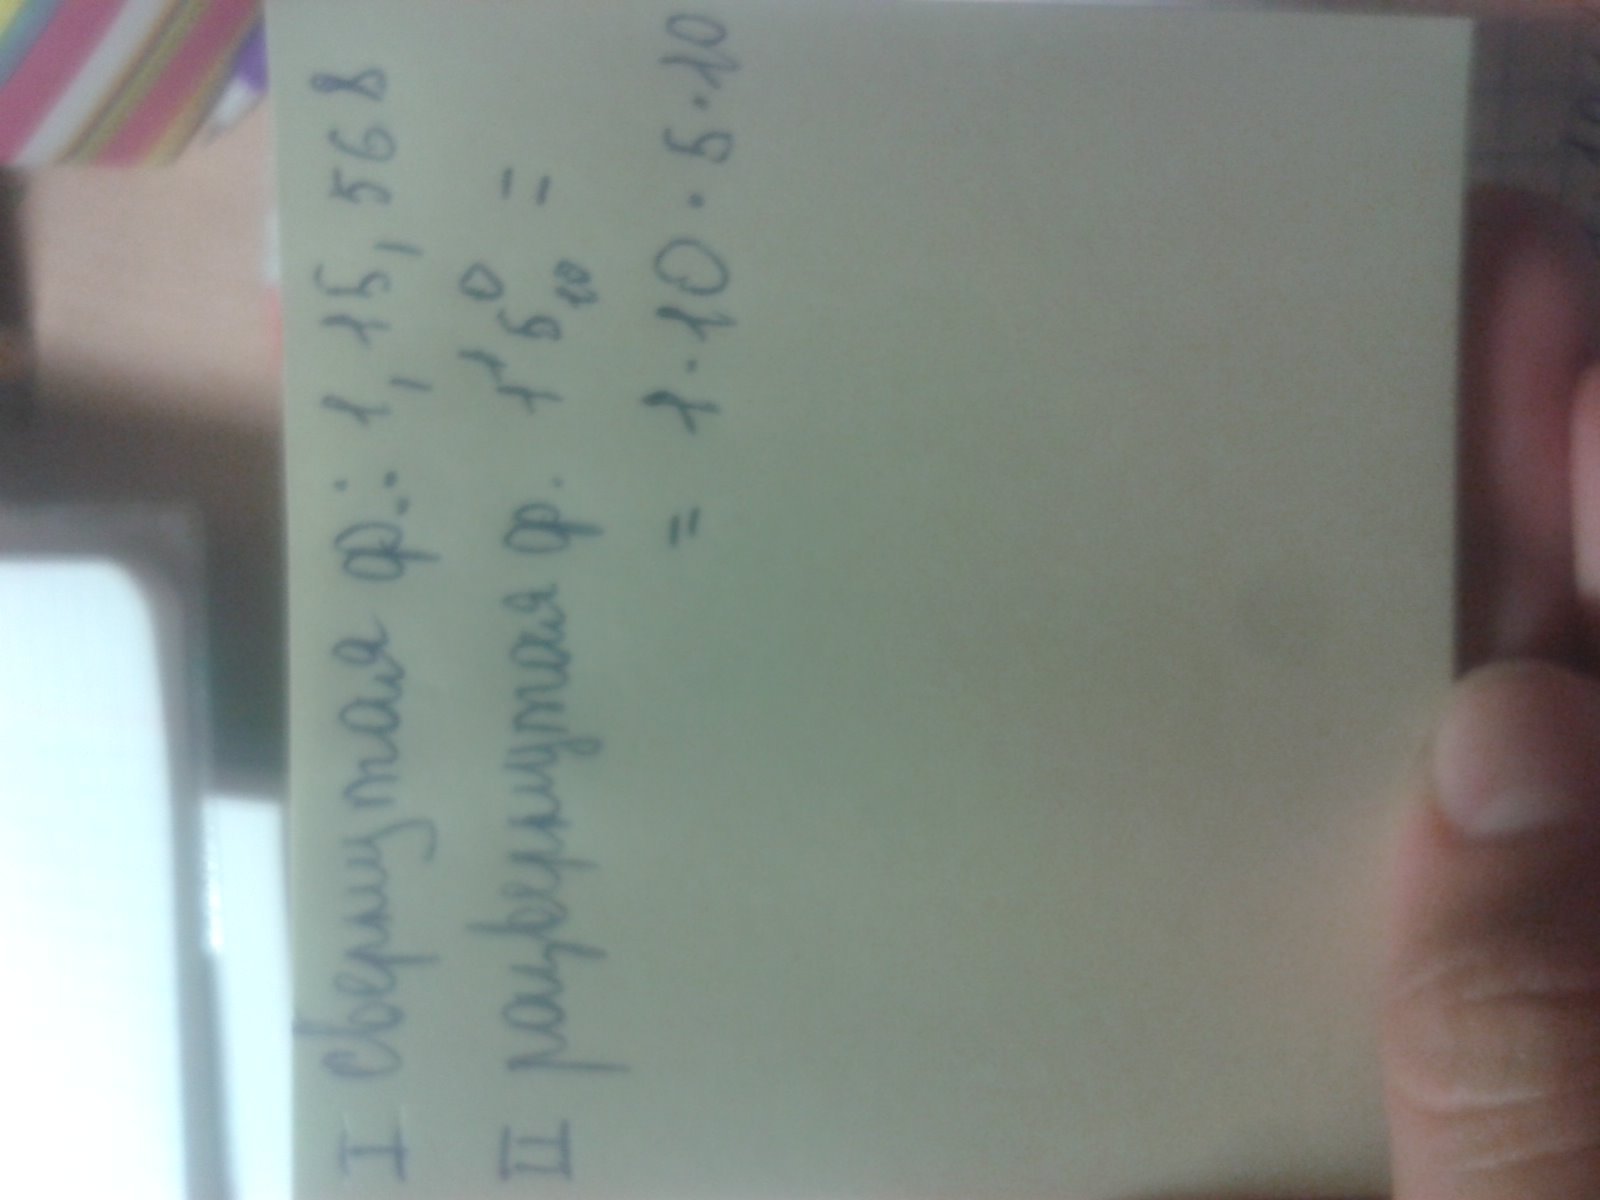 I свернутая ф.: 1, 15, 568
II развернутая ф. 1¹5⁰₁₀ =
= 1·10·5·10